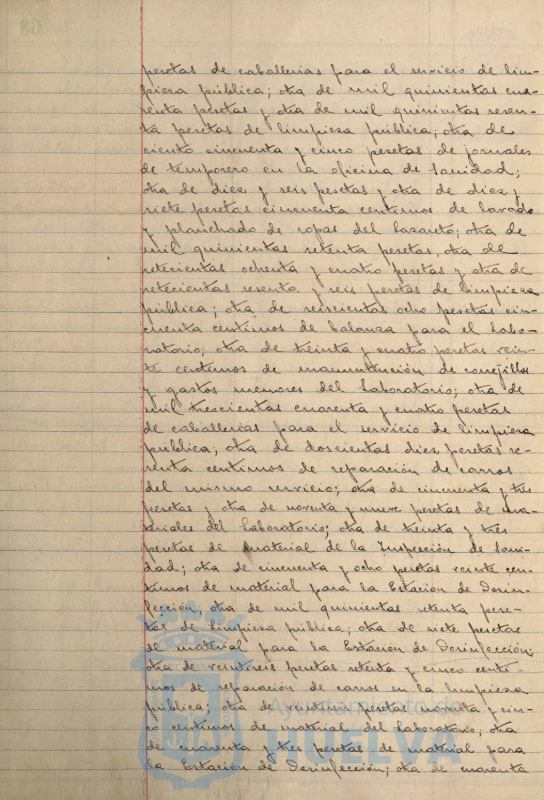 pesetas de caballerias para el servicio de lim-
pieza pública; otra de mil quinientas cua-
renta pesetas y otra de mil quinientas sesen-
ta pesetas de limpieza pública; otra de
ciento cincuenta y cinco pesetas de jornales
de temporero en la oficina de Sanidad;
otra de diez y seis pesetas y otra de diez y
siete pesetas cincuenta centimos de lavado
y planchado de ropas del Lazareto; otra de
mil quinientas setenta pesetas, otra de
setecientas ochenta y cuatro pesetas y otra de
setecientas sesenta y seis pesetas de limpieza
pública; otra de seiscientas ocho pesetas cin-
cuenta centimos de balanza para el Labo-
ratorio; otra de treinta y cuatro pesetas vein-
te centimos de manuntención de conejillos
y gastos menores del Laboratorio; otra de
mil trescientas cuarenta y cuatro pesetas
de caballerias para el servicio de limpieza
pública; otra de doscientas diez pesetas se-
senta centimos de reparación de carros
del mismo servicio; otra de cincuenta y tres
pesetas y otra de noventa y nueve pesetas de ma-
teriales del Laboratorio; otra de treinta y tres
pesetas de material de la Inspección de Sani-
dad; otra de cincuenta y ocho pesetas veinte cen-
timos de material para la Estación de Desin-
fección; otra de mil quinientas setenta pese-
tas de limpieza pública; otra de siete pesetas
de material para la Estación de Desinfección;
otra de veintiseis pesetas setenta y cinco centi-
mos de reparación de carros en la limpieza
pública; otra de veintiuna pesetas noventa y cin-
co centimos de material del Laboratorio; otra
de cuarenta y tres pesetas de material para
la Estación de Desinfección; otra de cuarenta
Ayuntamiento de
HUELVA